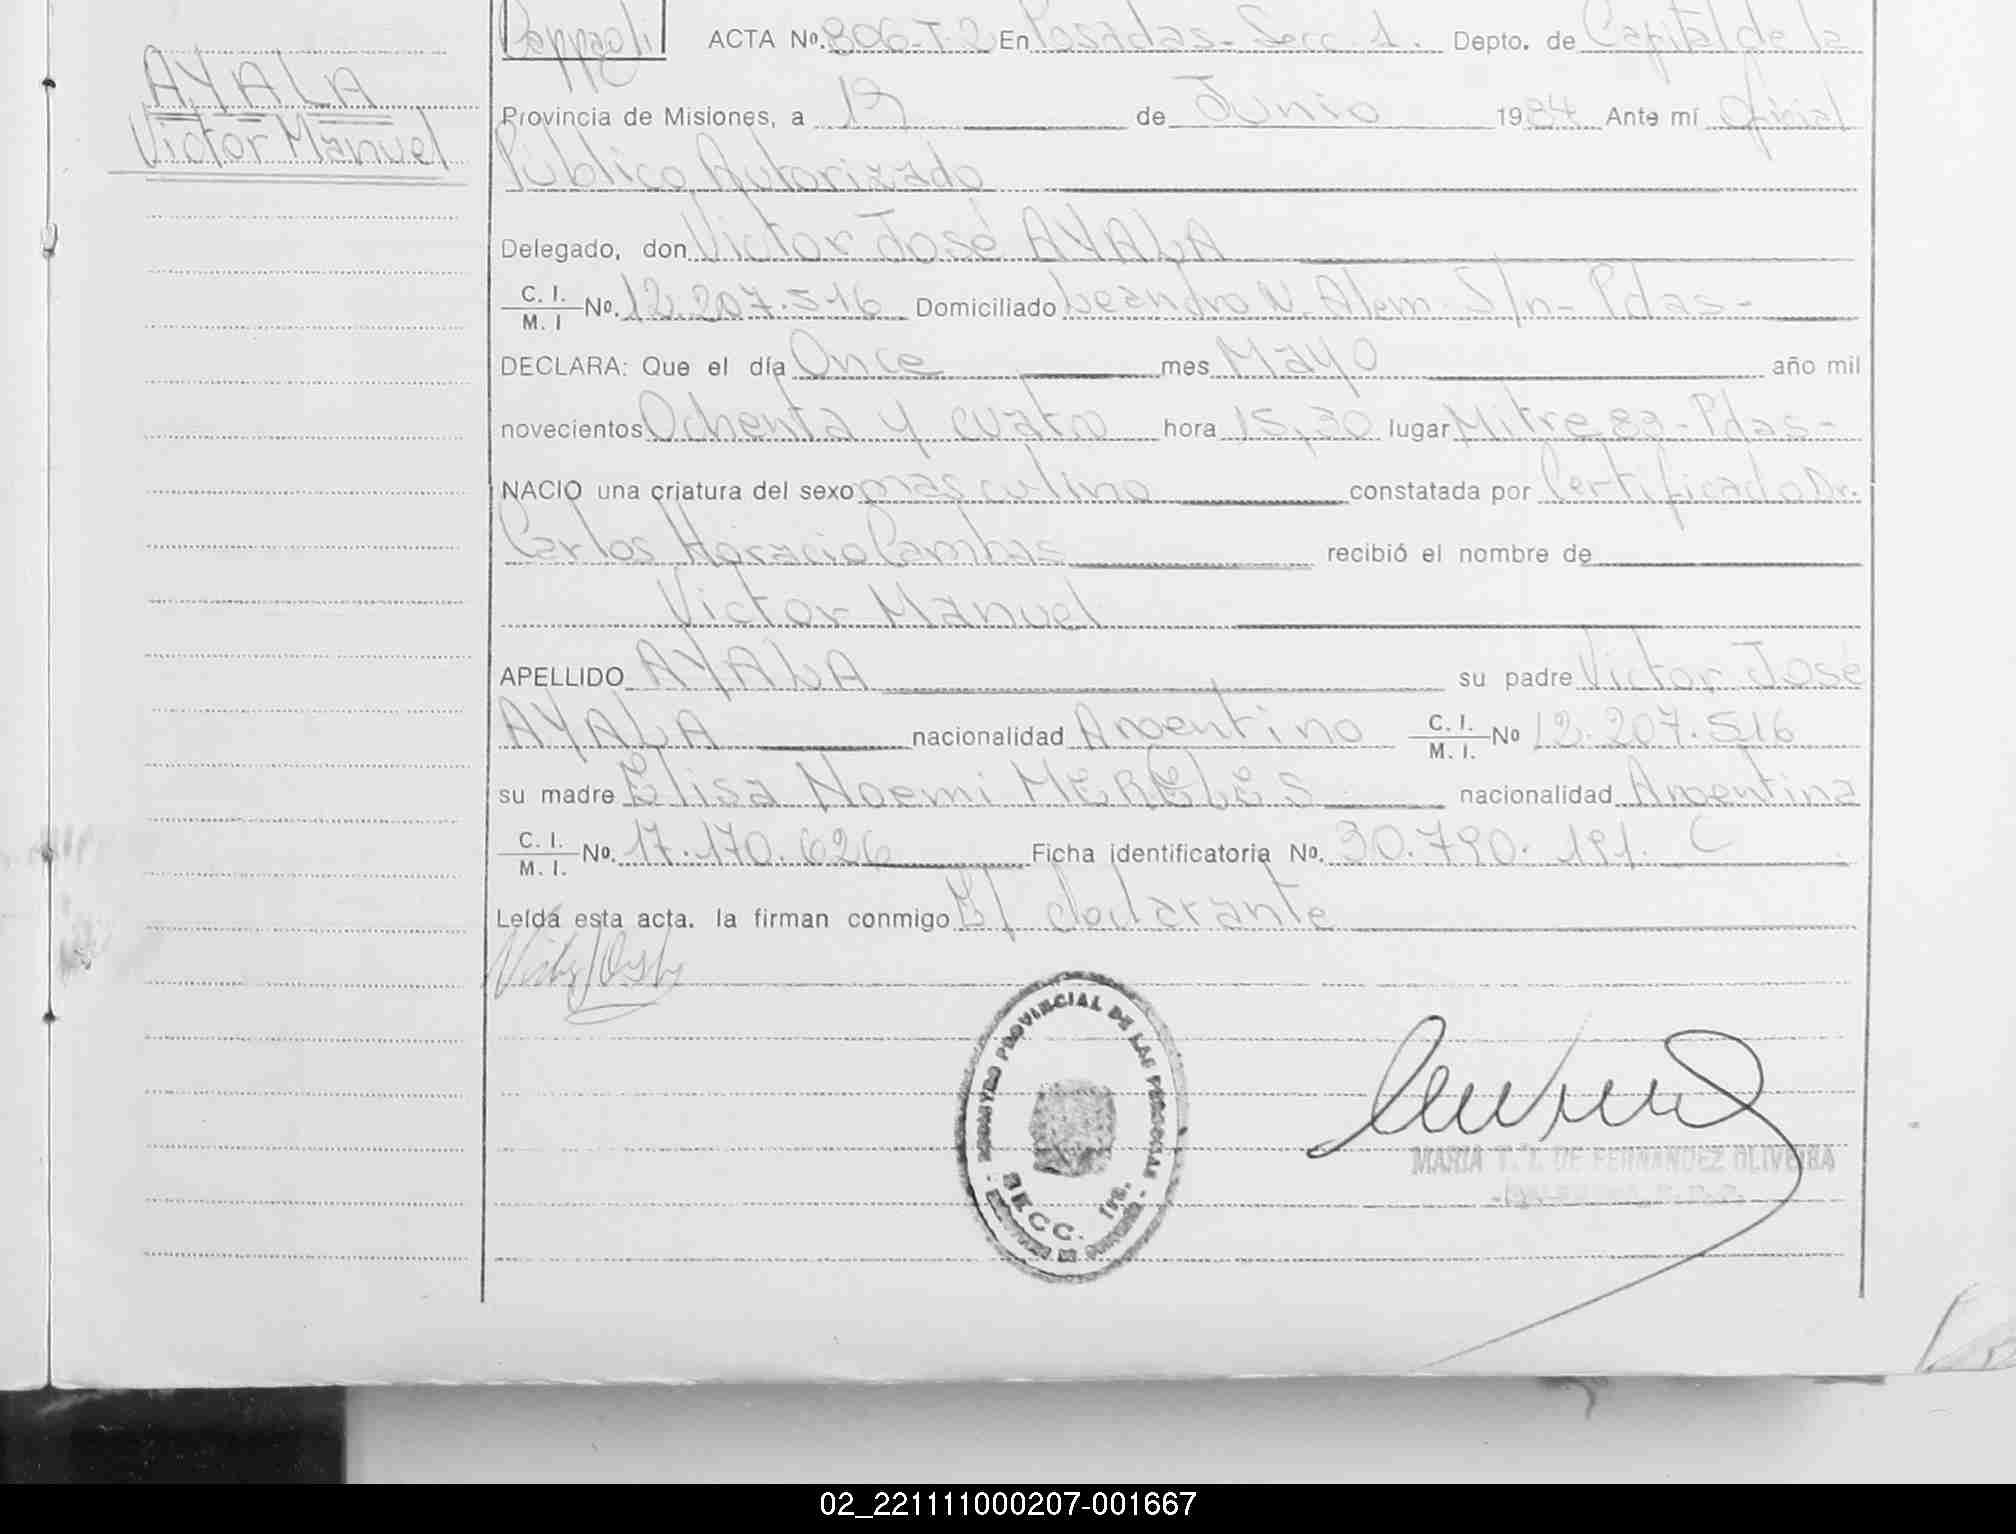 ACTA Nº. 806-T-2 En Posadas- Secc 1. Depto. de Capital de la
AYALA
Victor Manuel
Provincia de Misiones, a 19 de Junio 1984 Ante mí Oficial
Público Autorizado
Delegado, don Victor José AYALA
C. I. / M. I Nº. 12.207.516 Domiciliado Leandro N. Alem S/n- Pdas-
DECLARA: Que el día Once mes Mayo año mil
novecientos Ochenta y cuatro hora 15,30 lugar Mitre 89- Pdas-
NACIO una criatura del sexo masculino constatada por Certificado Dr.
Carlos Horacio Cambas recibió el nombre de
Victor Manuel
APELLIDO AYALA su padre Victor José
AYALA nacionalidad Argentino C. I. / M. I. Nº 12.207.516
su madre Elisa Noemi MERELES nacionalidad Argentina
C. I. / M. I. Nº. 17.170.626 Ficha identificatoria Nº. 30.790.191. C
Leída esta acta. la firman conmigo El declarante
REGISTRO PROVINCIAL DE LAS PERSONAS
SECC. 1ra.
MARIA T. T. DE FERNANDEZ OLIVEIRA
02_221111000207-001667